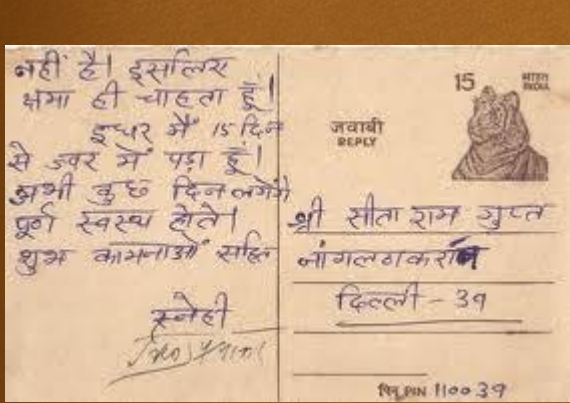 नहीं है। इसलिए
क्षमा ही चाहता हूँ।
इधर मैं 15 दिन
से ज्वर में पड़ा हूँ।
अभी कुछ दिन लगेंगे
पूर्ण स्वस्थ होते।
शुभ कामनाओं सहित
स्नेही
15
भारत
INDIA
जवाबी
REPLY
श्री सीता राम गुप्त
नांगलठाकरान
दिल्ली - 39
पिन PIN 110039